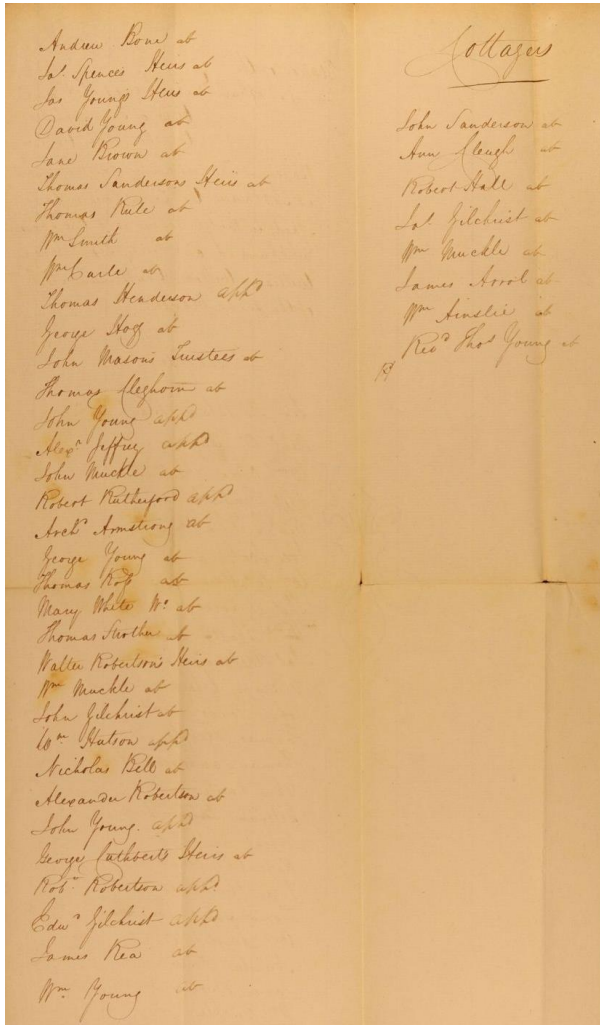 Andrew Bone ab
Jas. Spences Heirs ab
Jas Youngs Heirs ab
David Young ab
Jane Brown ab
Thomas Sandersons Heirs ab
Thomas Rule ab
Wm Smith ab
Wm Carle ab
Thomas Henderson appd
George Hogg ab
John Mason's Trustees ab
Thomas Cleghorn ab
John Young appd
Alexr Jeffrey appd
John Muckle ab
Robert Rutherford appd
Archd Armstrong ab
George Young ab
Thomas Ross ab
Mary White Wo ab
Thomas Strother ab
Walter Robertson's Heirs ab
Wm Muckle ab
John Gilchrist ab
Wm Hutson appd
Nicholas Bell ab
Alexander Robertson ab
John Young. appd
George Cuthberts Heirs ab
Robt Robertson appd
Edwd Gilchrist appd
James Rea ab
Wm Young ab
Cottagers
John Sanderson ab
Ann Cleugh ab
Robert Hall ab
Jas. Gilchrist ab
Wm Muckle ab
James Arrol ab
Wm Ainslie ab
Revd Thos Young ab